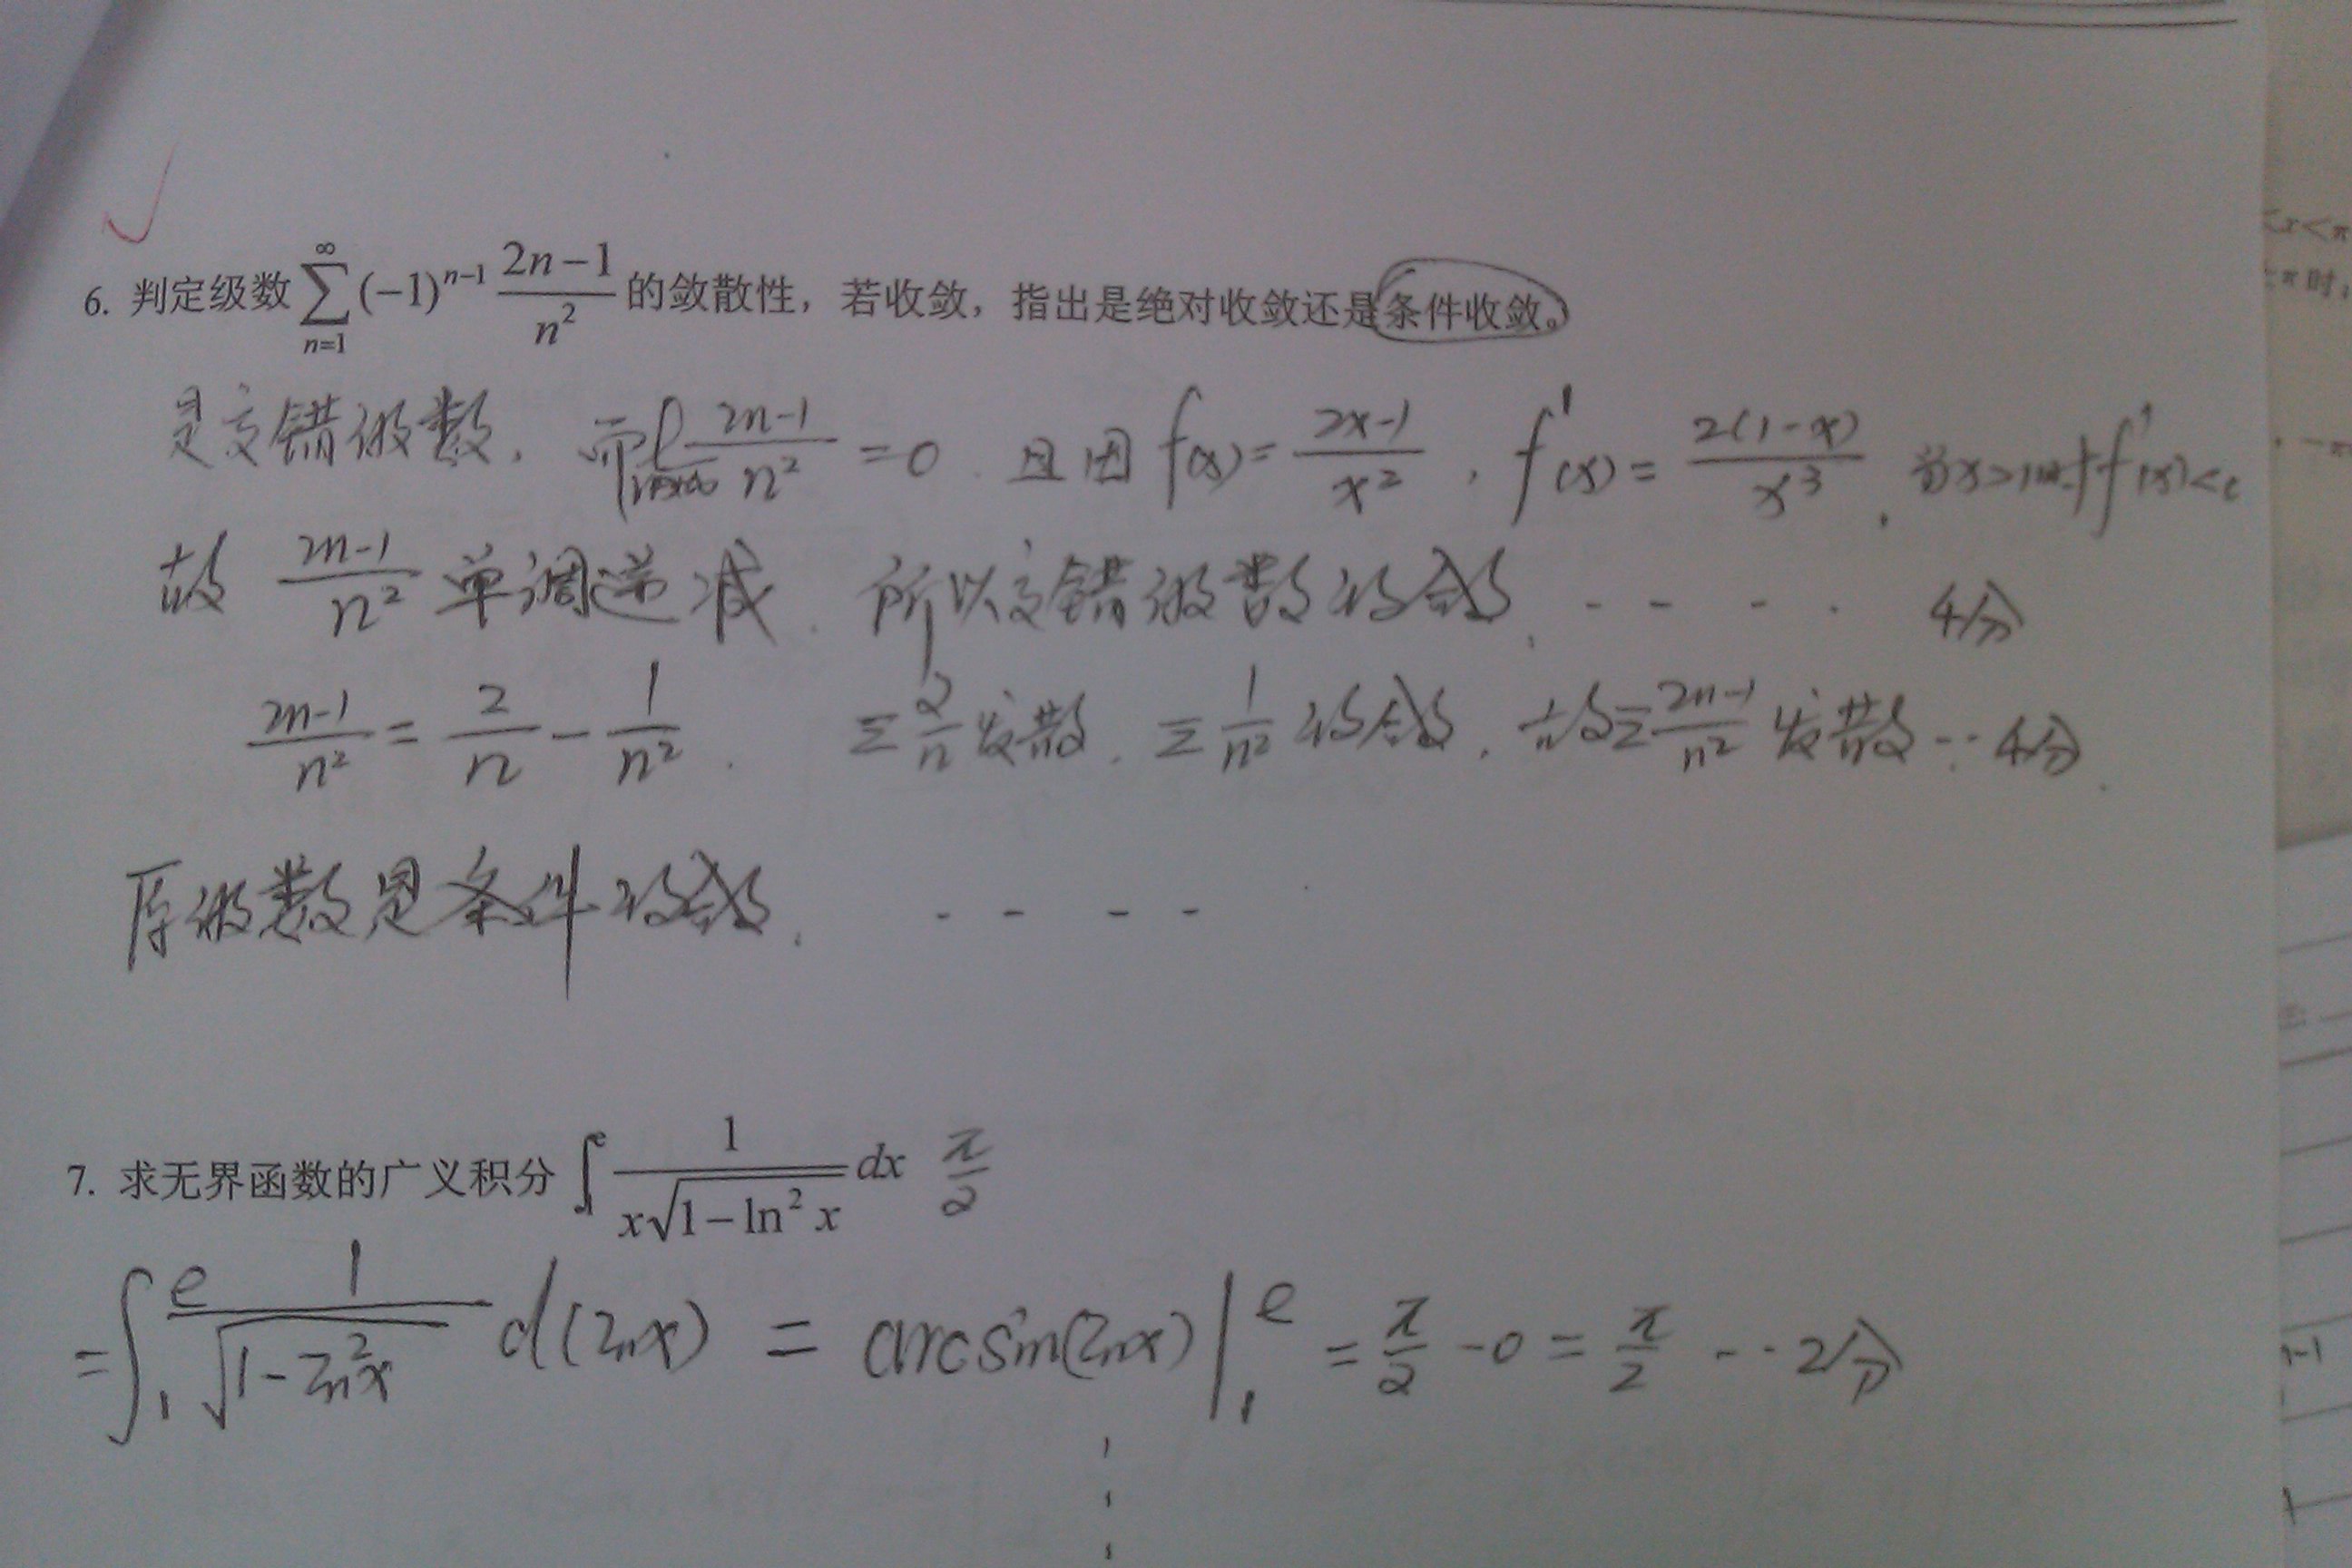 6. 判定级数 ∑_{n=1}^{∞} (-1)^{n-1} \frac{2n-1}{n^2} 的敛散性，若收敛，指出是绝对收敛还是条件收敛。
是交错级数, 而 \lim_{n→∞} \frac{2n-1}{n^2} = 0. 且因 f(x) = \frac{2x-1}{x^2}, f'(x) = \frac{2(1-x)}{x^3}, 当x>1时f'(x)<
故 \frac{2n-1}{n^2} 单调递减. 所以交错级数收敛. - - - - 4分
\frac{2n-1}{n^2} = \frac{2}{n} - \frac{1}{n^2}. ∑\frac{2}{n} 发散. ∑\frac{1}{n^2} 收敛. 故∑\frac{2n-1}{n^2} 发散 ·· 4分.
原级数是条件收敛. - - - -
7. 求无界函数的广义积分 ∫_1^e \frac{1}{x\sqrt{1-\ln^2 x}} dx \frac{π}{2}
= ∫_1^e \frac{1}{\sqrt{1-\ln^2 x}} d(\ln x) = arcsin(\ln x) |_1^e = \frac{π}{2} - 0 = \frac{π}{2} - ·· 2分